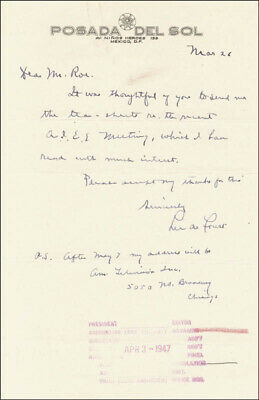 POSADA DEL SOL
AV. NIÑOS HEROES 139
MEXICO, D.F.
Mar 26
Dear Mr. Roe.
It was thoughtful of you to send me
the tear-sheets re. the recent
Meeting, which I have
read with much interest.
Please accept my thanks for this
Sincerely
Lee de Forest
P.S. After May 7 my address will be
Am Television Inc,
5050 No. Broadway
Chicago
PRESIDENT EDITOR
APR 3 - 1947